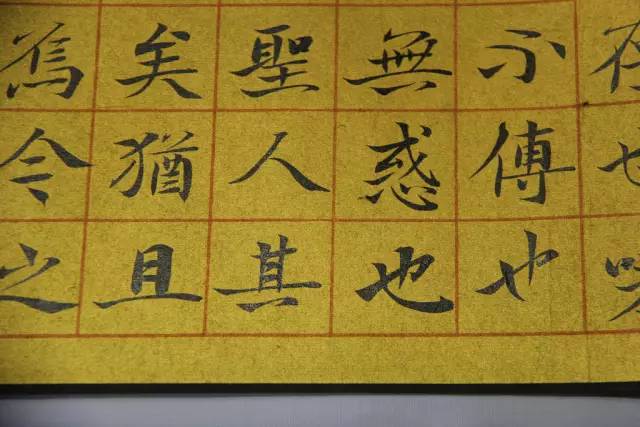 存也嗟
不傳也
無惑也
聖人其
矣猶且
焉今之